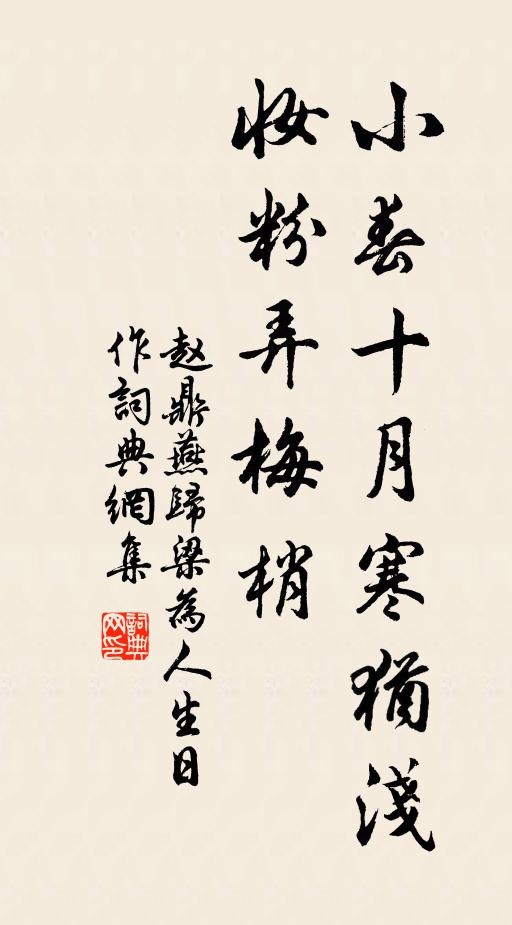 小春十月寒猶淺
妝粉弄梅梢
赵鼎燕歸梁為人生日
作詞典網集
詞典网印